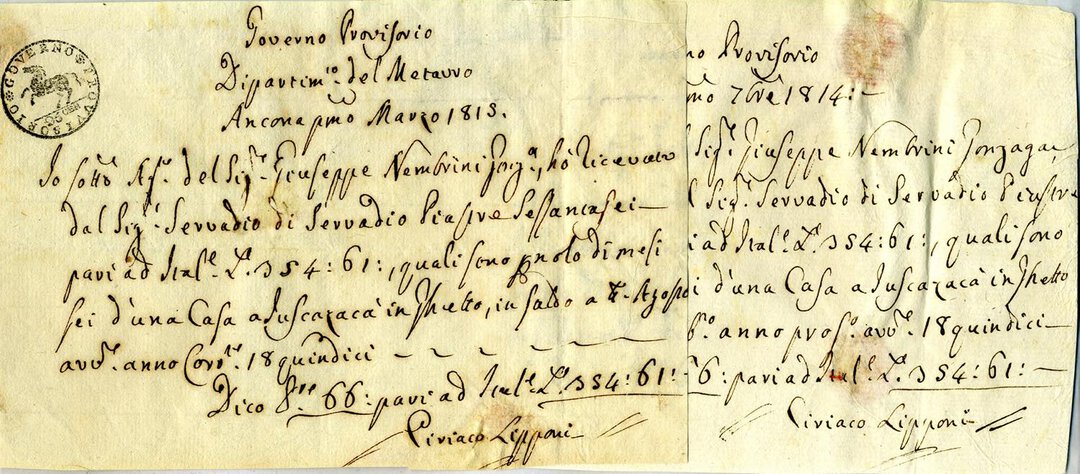 GOVERNO PROVVISORIO
Governo Provisorio
Dipartim.to del Metauro
Ancona pmo Marzo 1815.
Io sotto Ag.e del Sig.r Giuseppe Nembrini Gonz.a, hò ricevuto
dal Sig.r Servadio di Servadio Piastre Sessantasei
pari ad Ital.e L.e 354:61:, quali sono pnolo di mesi
sei d'una Casa a Juscazacà in Ghetto, in saldo a Agosto
avv.e anno Corr.te 18quindici
Dico P.re 66: pari ad Ital.e L.e 354:61:
Ciriaco Lipponi
no Provisorio
mo 7bre 1814:
Sig.r Giuseppe Nembrini Gonzaga,
Sig.r Servadio di Servadio Piastre
ri ad Ital.e L.e 354:61:, quali sono
i d'una Casa a Juscazacà in Ghetto
b.o anno pros.o avv.e 18quindici
6: pari ad Ital.e L.e 354:61:
Ciriaco Lipponi